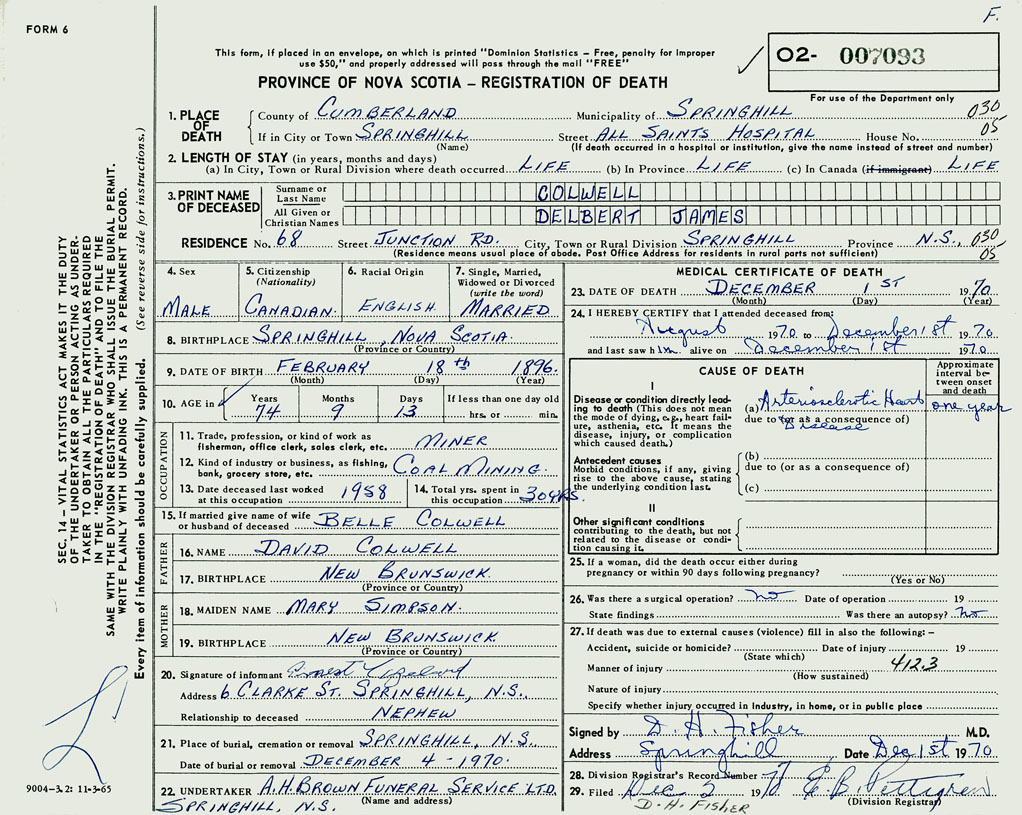 F.
FORM 6
This form, if placed in an envelope, on which is printed "Dominion Statistics – Free, penalty for improper
use $50," and properly addressed will pass through the mail "FREE"
02- 007093
PROVINCE OF NOVA SCOTIA – REGISTRATION OF DEATH
For use of the Department only
1. PLACE OF DEATH County of CUMBERLAND Municipality of SPRINGHILL 030
If in City or Town SPRINGHILL Street ALL SAINTS HOSPITAL House No. 05
(Name) (If death occurred in a hospital or institution, give the name instead of street and number)
2. LENGTH OF STAY (in years, months and days)
(a) In City, Town or Rural Division where death occurred LIFE (b) In Province LIFE (c) In Canada (if immigrant) LIFE
3. PRINT NAME OF DECEASED Surname or Last Name COLWELL
All Given or Christian Names DELBERT JAMES
RESIDENCE No. 68 Street JUNCTION RD. City, Town or Rural Division SPRINGHILL Province N.S., 030
(Residence means usual place of abode. Post Office Address for residents in rural parts not sufficient) 05
4. Sex MALE
5. Citizenship (Nationality) CANADIAN
6. Racial Origin ENGLISH
7. Single, Married, Widowed or Divorced (write the word) MARRIED
8. BIRTHPLACE SPRINGHILL, NOVA SCOTIA.
(Province or Country)
9. DATE OF BIRTH FEBRUARY 18th 1896.
(Month) (Day) (Year)
10. AGE in Years Months Days If less than one day old
74 9 13 hrs. or min.
OCCUPATION
11. Trade, profession, or kind of work as
fisherman, office clerk, sales clerk, etc. MINER
12. Kind of industry or business, as fishing,
bank, grocery store, etc. COAL MINING.
13. Date deceased last worked at this occupation 1958
14. Total yrs. spent in this occupation 30YRS.
15. If married give name of wife
or husband of deceased BELLE COLWELL
FATHER
16. NAME DAVID COLWELL
17. BIRTHPLACE NEW BRUNSWICK.
(Province or Country)
MOTHER
18. MAIDEN NAME MARY SIMPSON.
19. BIRTHPLACE NEW BRUNSWICK
(Province or Country)
20. Signature of informant
Address 6 CLARKE ST. SPRINGHILL, N.S.
Relationship to deceased NEPHEW
21. Place of burial, cremation or removal SPRINGHILL, N.S.
Date of burial or removal DECEMBER 4 - 1970.
22. UNDERTAKER A.H. BROWN FUNERAL SERVICE LTD.
(Name and address)
SPRINGHILL, N.S.
MEDICAL CERTIFICATE OF DEATH
23. DATE OF DEATH DECEMBER 1ST 1970
(Month) (Day) (Year)
24. I HEREBY CERTIFY that I attended deceased from:
August 1970 to December 1st 1970
and last saw him alive on December 1st 1970
CAUSE OF DEATH
Approximate interval between onset and death
I
Disease or condition directly leading to death (This does not mean the mode of dying, e.g., heart failure, asthenia, etc. It means the disease, injury, or complication which caused death.)
(a) Arteriosclerotic Heart Disease one year
due to (or as a consequence of)
Antecedent causes
Morbid conditions, if any, giving rise to the above cause, stating the underlying condition last.
(b)
due to (or as a consequence of)
(c)
II
Other significant conditions
contributing to the death, but not related to the disease or condition causing it.
25. If a woman, did the death occur either during
pregnancy or within 90 days following pregnancy?
(Yes or No)
26. Was there a surgical operation? no Date of operation 19
State findings Was there an autopsy? no
27. If death was due to external causes (violence) fill in also the following: –
Accident, suicide or homicide? Date of injury 19
(State which)
Manner of injury 412.3
(How sustained)
Nature of injury
Specify whether injury occurred in industry, in home, or in public place
Signed by D. H. Fisher M.D.
Address Springhill Date Dec 1st 1970
28. Division Registrar's Record Number 71
29. Filed Dec 2 1970 E B. Pettigrew
(Division Registrar)
D. H. FISHER
SEC. 14 – VITAL STATISTICS ACT MAKES IT THE DUTY
OF THE UNDERTAKER OR PERSON ACTING AS UNDERTAKER
TO OBTAIN ALL THE PARTICULARS REQUIRED
IN THE "REGISTRATION OF DEATH" AND TO FILE THE
SAME WITH THE DIVISION REGISTRAR WHO SHALL ISSUE THE BURIAL PERMIT.
WRITE PLAINLY WITH UNFADING INK. THIS IS A PERMANENT RECORD.
Every item of information should be carefully supplied. (See reverse side for instructions.)
9004-3.2: 11-3-65